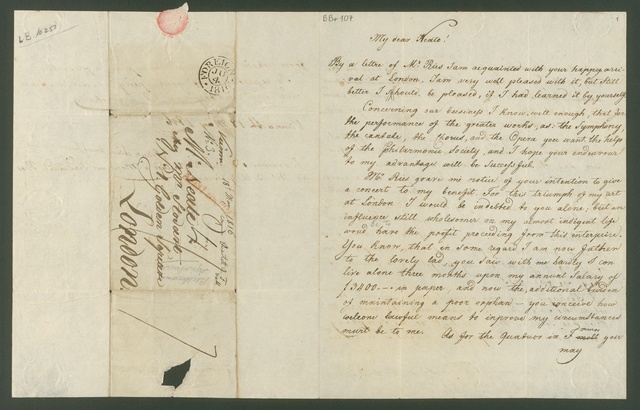 BBr 107
1
My dear Neate!
By a letter of Mr Ries I am acquainted with your happy arri-
val at London. I am very well pleased with it, but still
better I should be pleased, if I had learned it by yourself.
Concerning our business I know well enough, that for
the performance of the greater works, as: the Symphony,
the cantate, the Chorus, and the Opera you want the help
of the philarmonic Society, and I hope your endeavour
to my advantage will be successful.
Mr Ries gave me notice of your intention to give
a concert to my benefit. For this triumph of my art
at London I would be indebted to you alone; but an
influence still wholesomer on my almost indigent life
would have the profit proceeding from this enterprize.
You know, that in some regard I am now father
to the lovely lad you saw with me hardly I can
live alone three months upon my annual salary of
f.3400.-- in paper, and now the additional burden
of maintaining a poor orphan – you conceive how
welcome lawful means to improve my circumstances
must be to me. As for the Quatuor in F minor you
may
FOREIGN
1816
Mr Neate
London